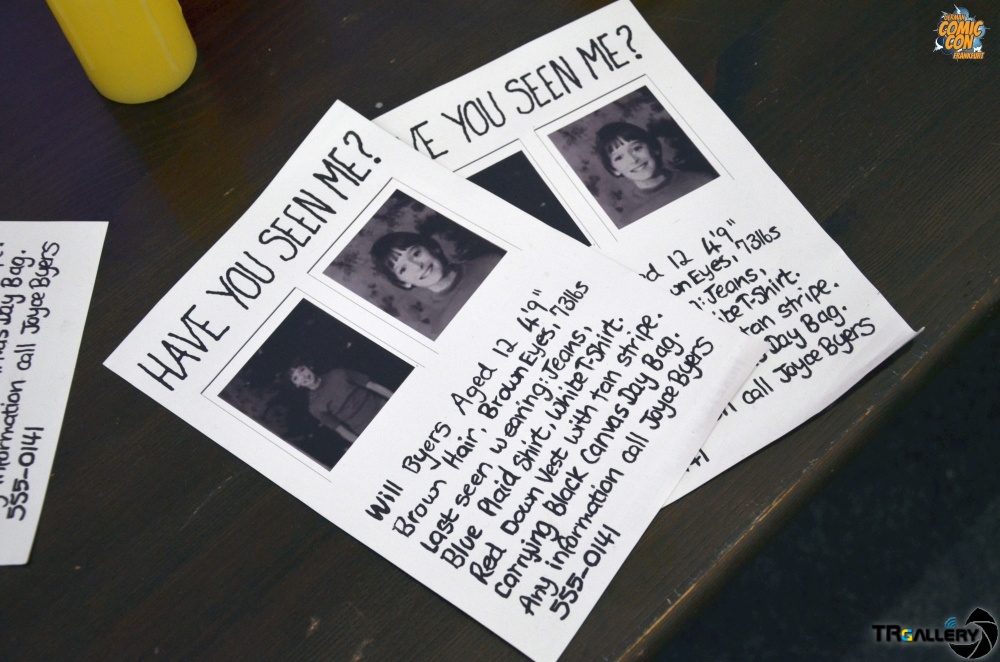 HAVE YOU SEEN ME?
Will Byers Aged 12 4'9"
Brown Hair, Brown Eyes, 73lbs
Last seen wearing: Jeans,
Blue Plaid Shirt, White T-Shirt.
Red Down Vest with tan stripe.
Carrying Black Canvas Day Bag.
Any information call Joyce Byers
555-0141
VE YOU SEEN ME?
ed 12 4'9"
wn Eyes, 73lbs
g: Jeans,
ite T-Shirt.
tan stripe.
Day Bag.
call Joyce Byers
41
Day Bag.
information call Joyce Byers
555-0141
GERMAN
COMIC
CON
FRANKFURT
TRGALLERY